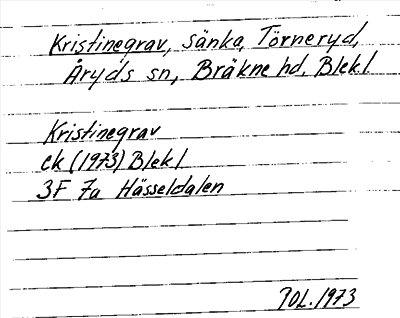 Kristinegrav, sänka, Törneryd,
Åryds sn, Bräkne hd. Blekl
Kristinegrav
ek (1973) Blekl
3F 7a Hässeldalen
JOL. 1973